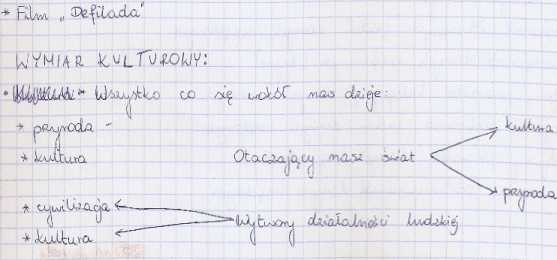 * Film „Defilada"
WYMIAR KULTUROWY:
• Wszystko co się wokół nas dzieje:
* przyroda -
* kultura
Otaczający nasz świat
kultura
przyroda
* cywilizacja
* kultura
Wytwory działalności ludzkiej